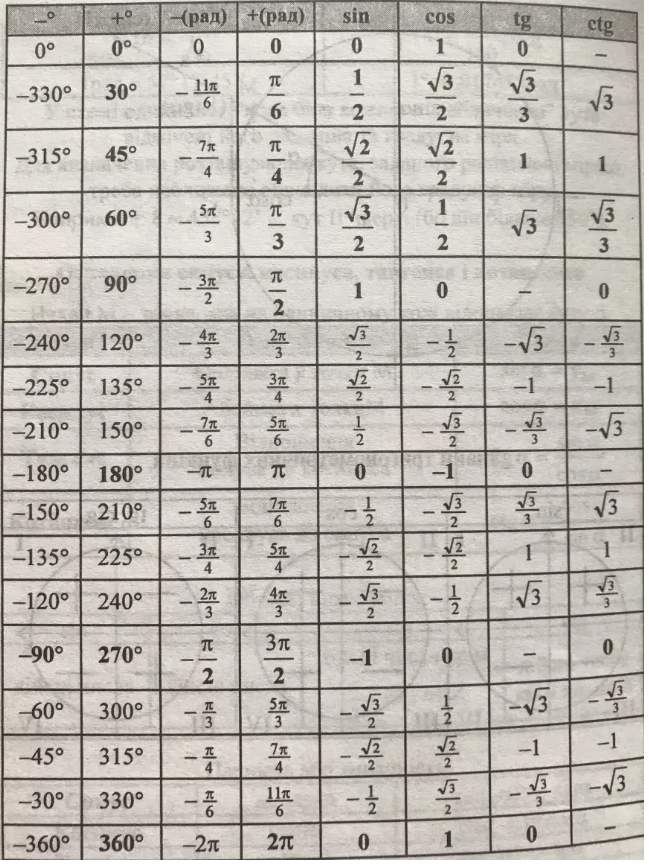 –° +° –(рад) +(рад) sin cos tg ctg
0° 0° 0 0 0 1 0 –
–330° 30° -11π/6 π/6 1/2 √3/2 √3/3 √3
–315° 45° -7π/4 π/4 √2/2 √2/2 1 1
–300° 60° -5π/3 π/3 √3/2 1/2 √3 √3/3
–270° 90° -3π/2 π/2 1 0 – 0
–240° 120° -4π/3 2π/3 √3/2 -1/2 -√3 -√3/3
–225° 135° -5π/4 3π/4 √2/2 -√2/2 –1 –1
–210° 150° -7π/6 5π/6 1/2 -√3/2 -√3/3 -√3
–180° 180° –π π 0 –1 0 –
–150° 210° -5π/6 7π/6 -1/2 -√3/2 √3/3 √3
–135° 225° -3π/4 5π/4 -√2/2 -√2/2 1 1
–120° 240° -2π/3 4π/3 -√3/2 -1/2 √3 √3/3
–90° 270° -π/2 3π/2 –1 0 – 0
–60° 300° -π/3 5π/3 -√3/2 1/2 -√3 -√3/3
–45° 315° -π/4 7π/4 -√2/2 √2/2 –1 –1
–30° 330° -π/6 11π/6 -1/2 √3/2 -√3/3 -√3
–360° 360° –2π 2π 0 1 0 –